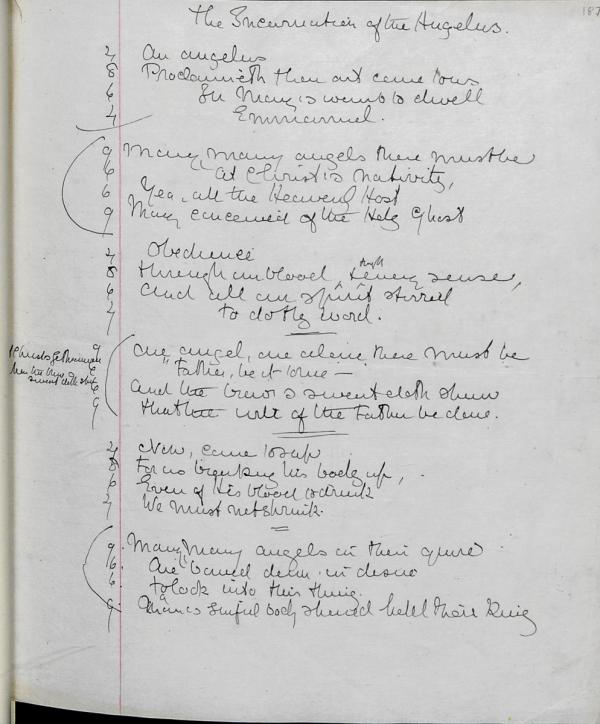 187
The Incarnation of the Angelus.
4 An angelus
8 Proclaimeth thou art come to us
6 In Mary's womb to dwell
4 Emmanuel.
9 Many, many angels there must be
6 At Christ's nativity,
6 Yea, all the Heavenly Host
9 Mary conceived of the Holy Ghost
4 Obedience
8 through our blood, through every sense,
6 And all our spirit stirred
4 to do thy word.
9 One angel, one alone there must be
6 "Father, be it done —
6 And the brow's sweat doth show
9 that the will of the Father be done.
Christ's Gethsemane
sweat doth show
4 Now, come to sup
8 For us breaking his body up,
6 Even of His blood to drink
4 We must not shrink.
9. Many, many angels in their quire
6. Are bowed down in desire
6. To look into this thing.
9. Man's sinful body should hold their King